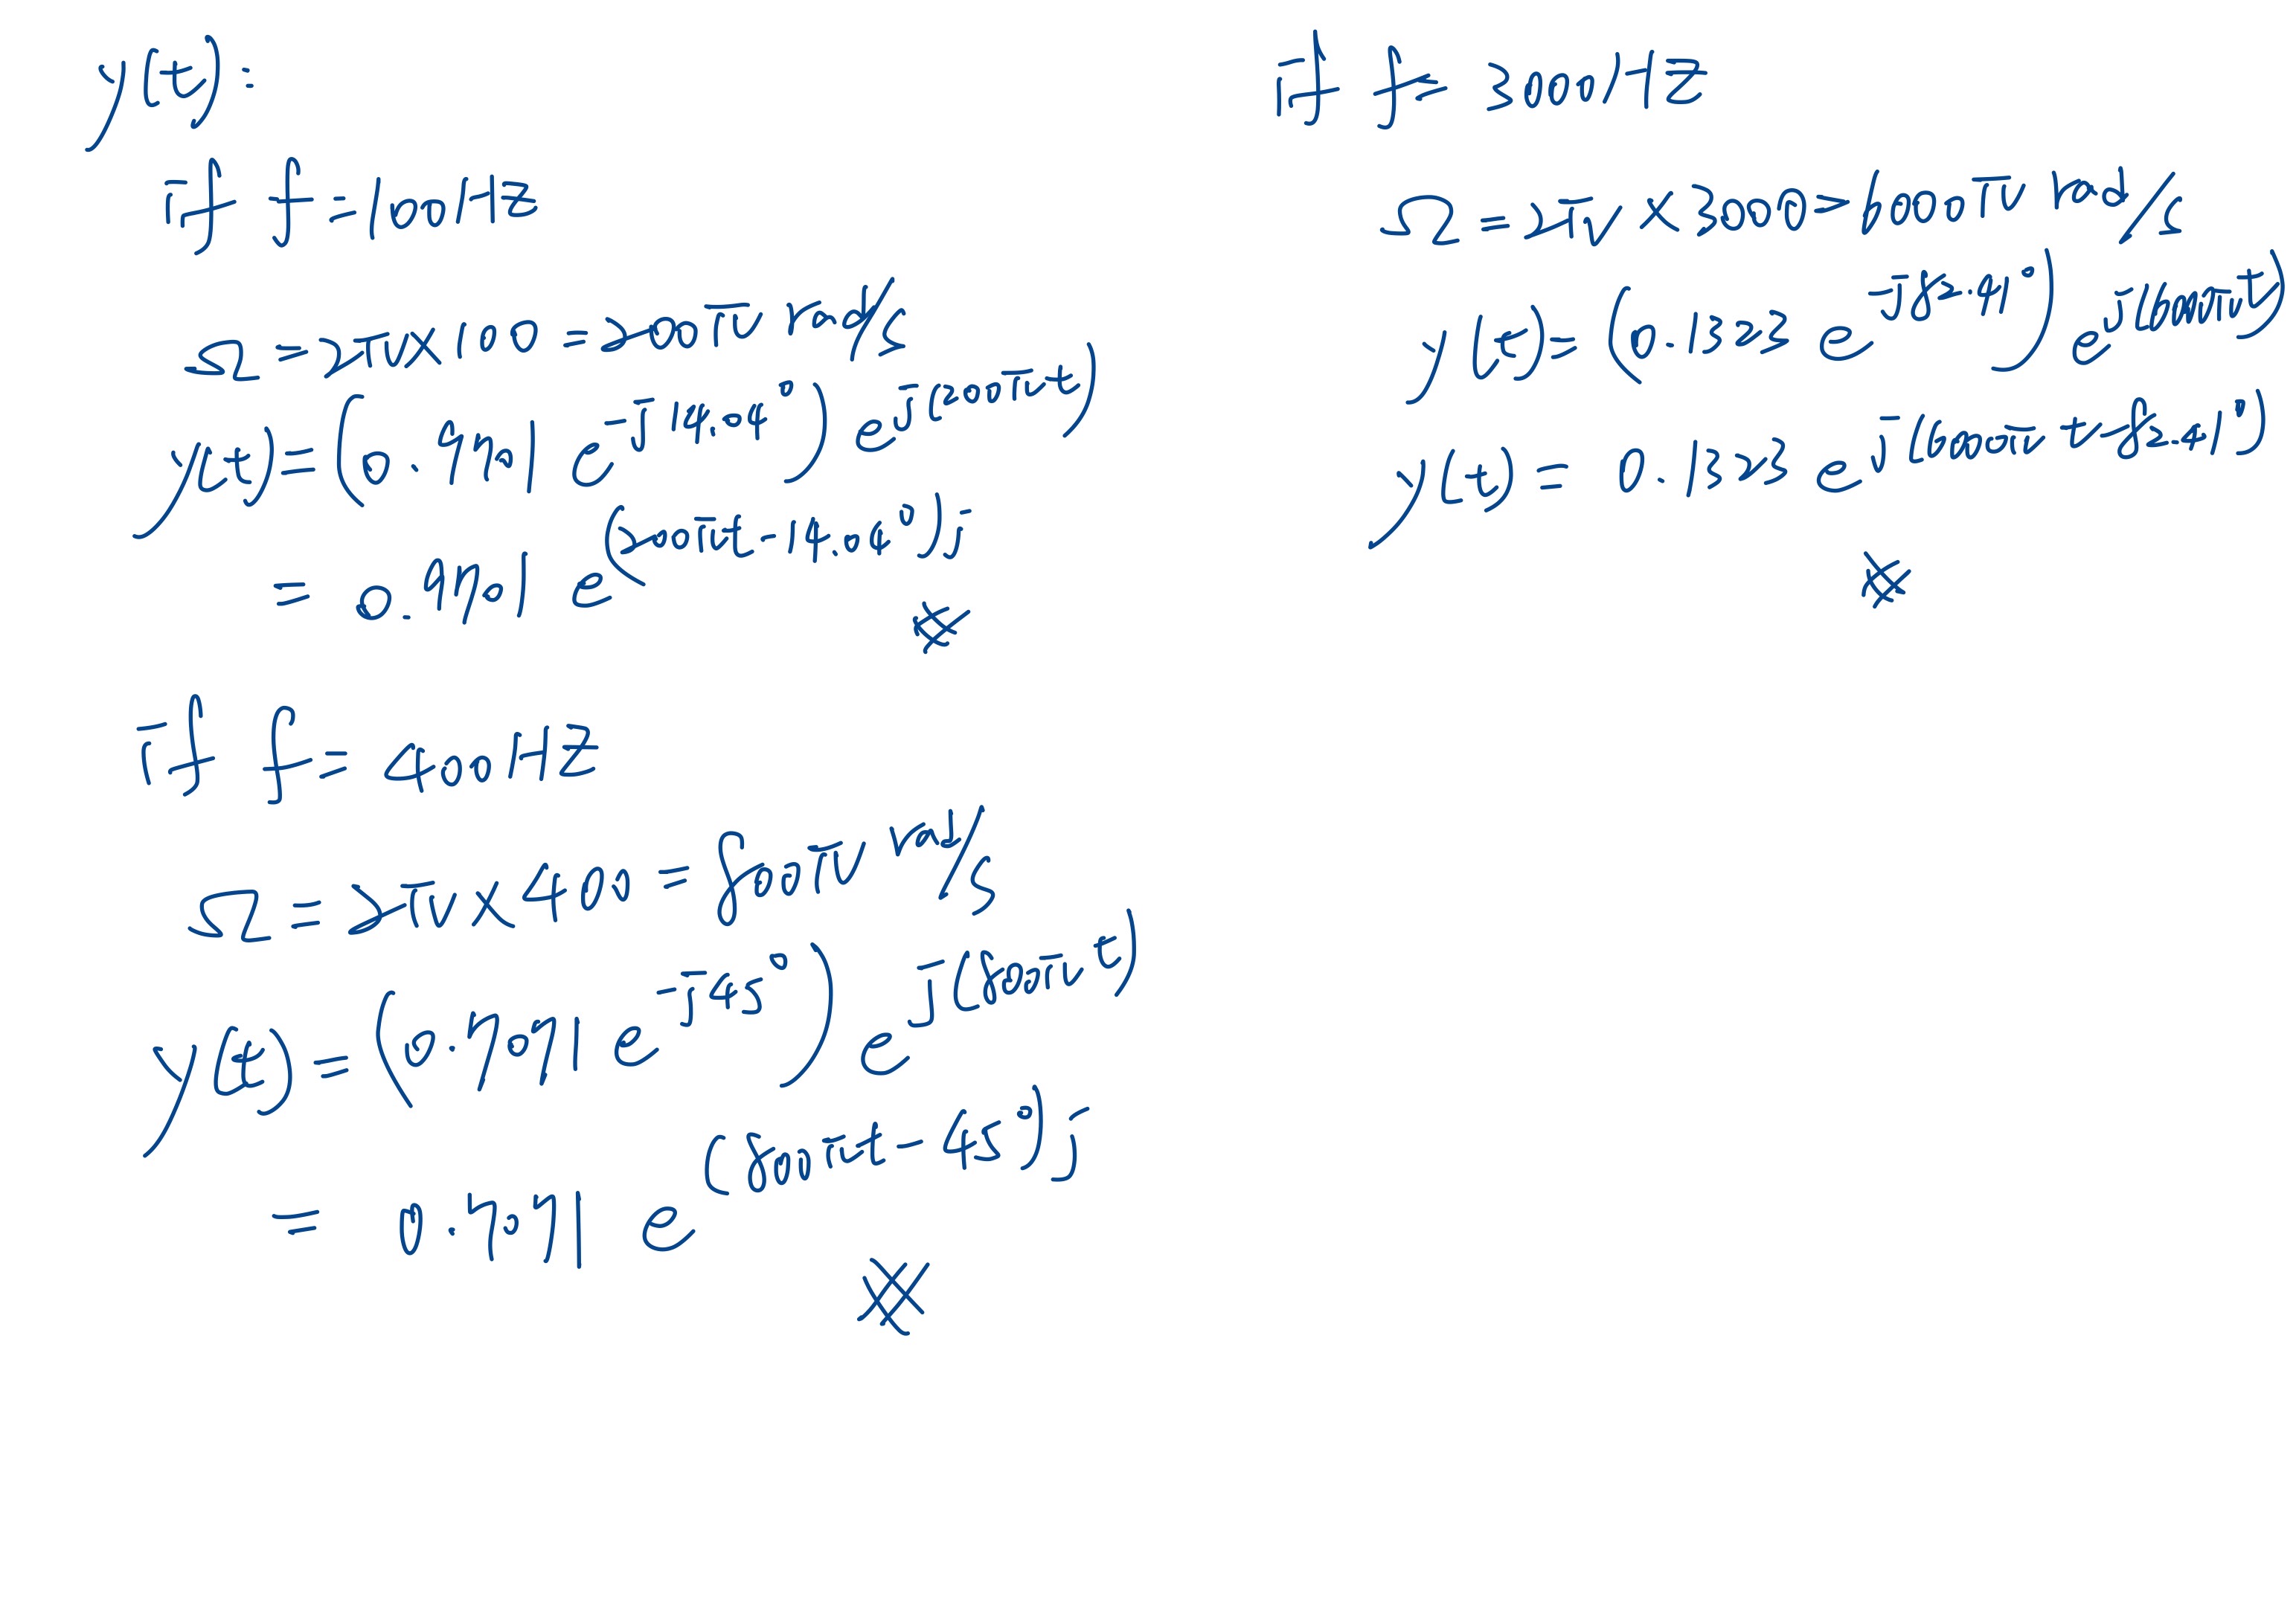 y(t):
if f=100Hz
Ω=2π×100=200π rad/s
y(t)=(0.9701 e^-j14.04°) e^j(200πt)
= 0.9701 e^(200πt-14.04°)j
※
if f=400Hz
Ω=2π×400=800π rad/s
y(t)=(0.7071 e^-j45°) e^j(800πt)
= 0.7071 e^(800πt-45°)j
※
if f=3000Hz
Ω=2π×3000=6000π rad/s
y(t)=(0.1323 e^-j82.41°) e^j(6000πt)
y(t)= 0.1323 e^j(6000πt-82.41°)
※